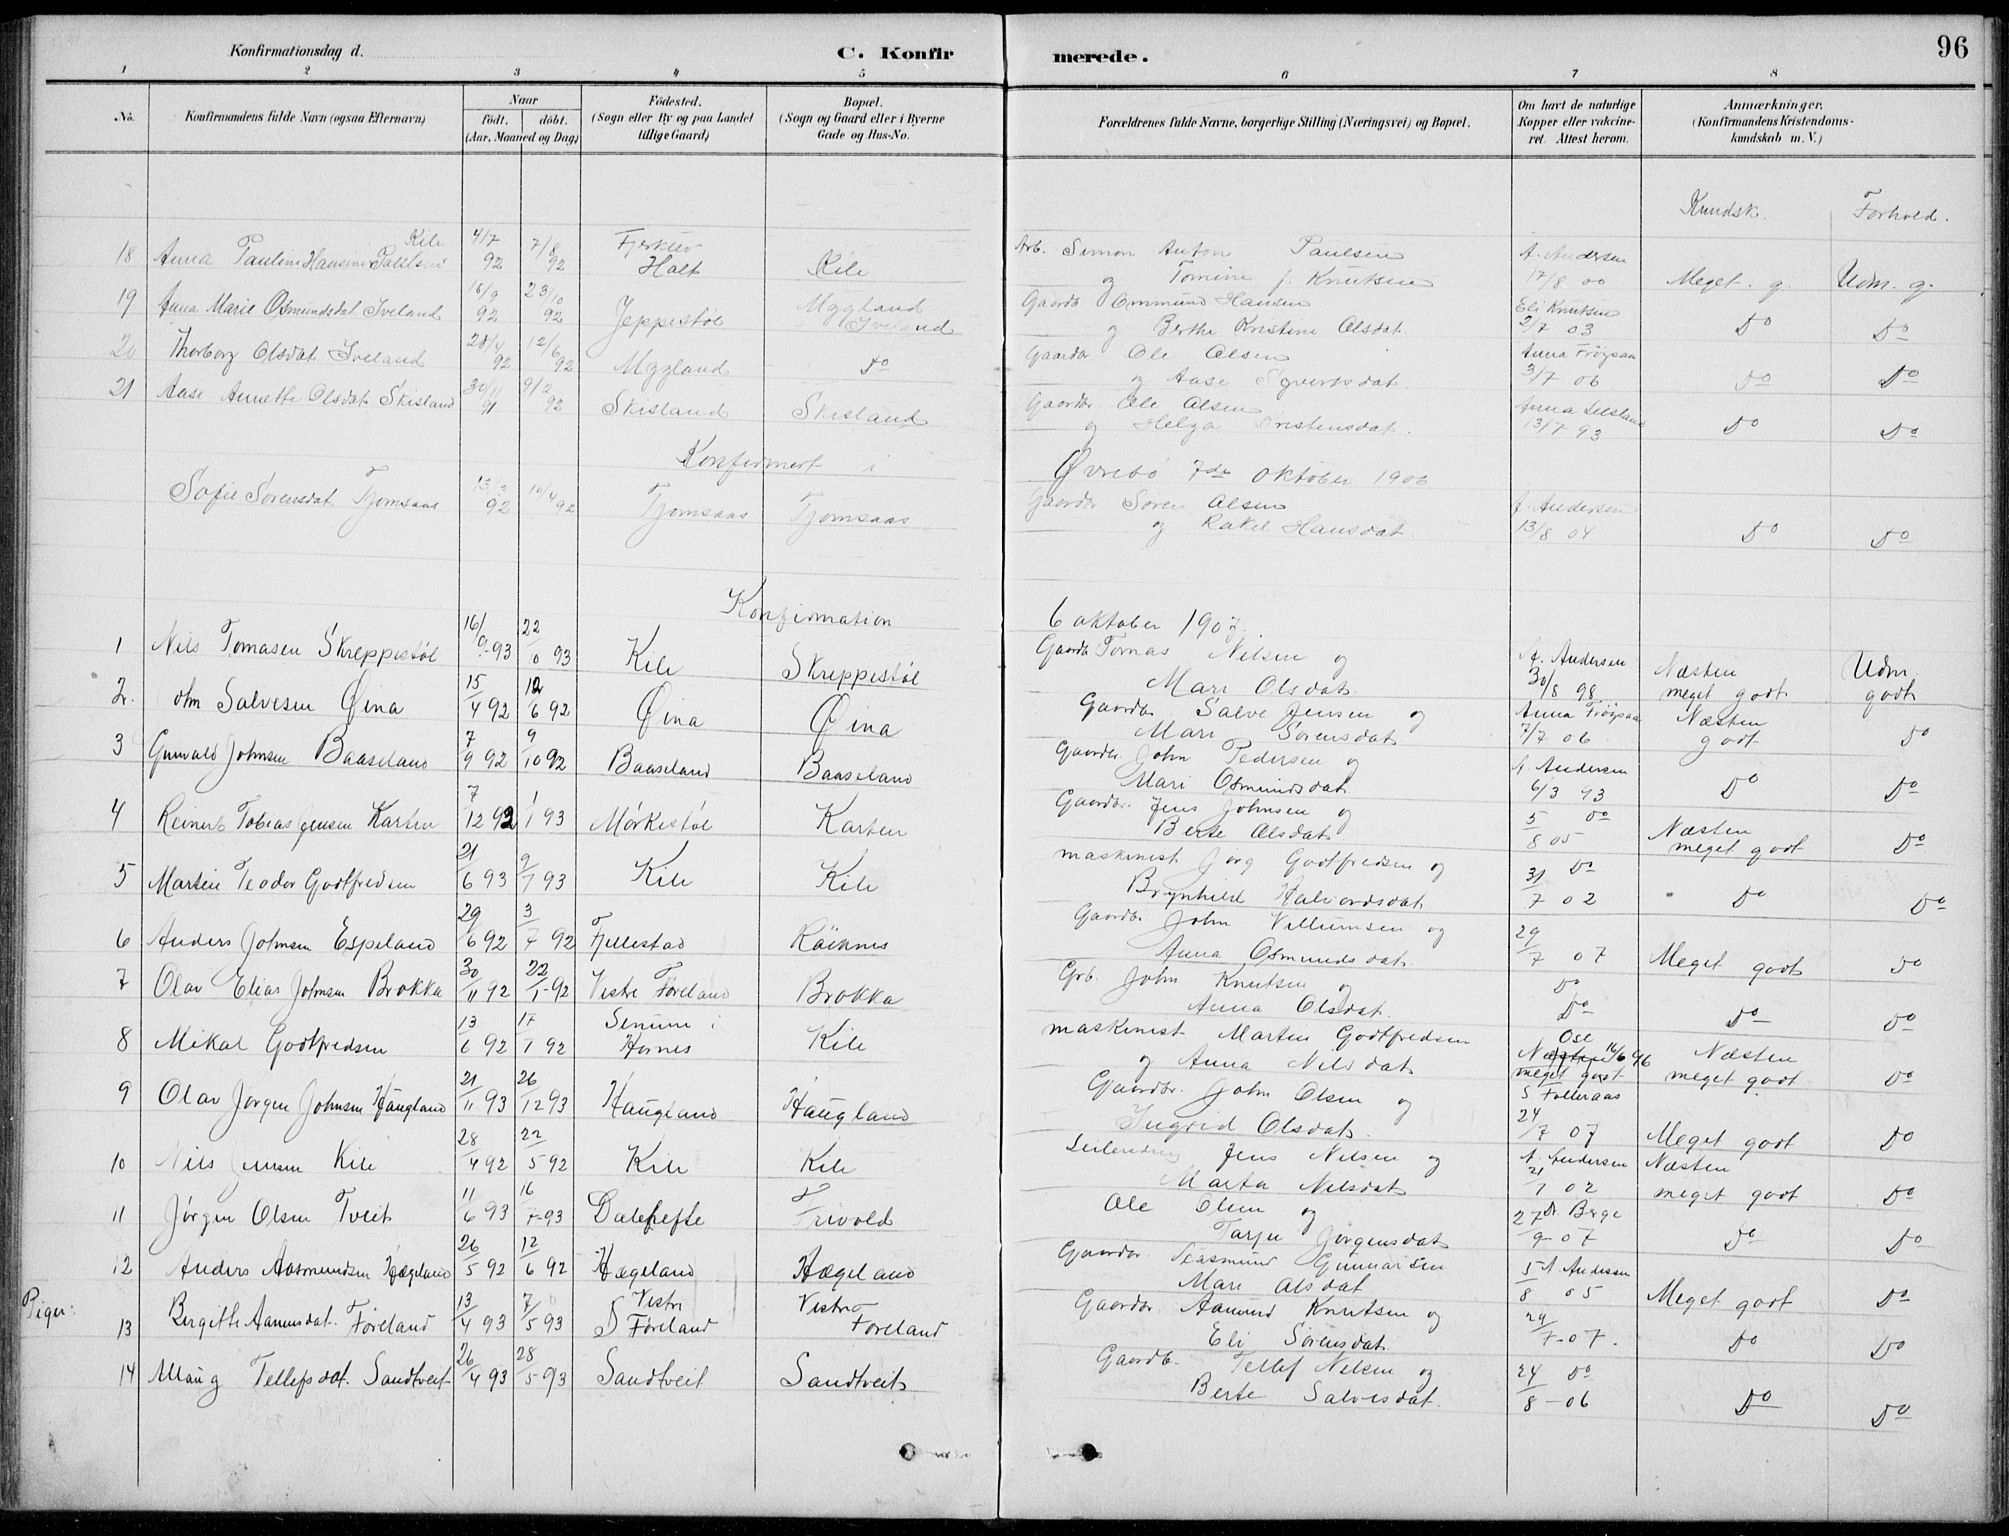 96
Konfirmationsdag d. C. Konfirmerede.
1 2 3 4 5 6 7 8
No. Konfirmandens fulde Navn (ogsaa Efternavn) Naar født. døbt. (Aar, Maaned og Dag) Fødested. (Sogn eller By og paa Landet tillige Gaard) Bopæl. (Sogn og Gaard eller i Byerne Gade og Hus-No. Forældrenes fulde Navne, borgerlige Stilling (Næringsvei) og Bopæl. Om havt de naturlige Kopper eller vakcineret. Attest herom. Anmærkninger. (Konfirmandens Kristendomskundskab m. V.)
Kundsk. Forhold.
18 Anna Pauline Hansine Paulsen Kile 4/7 92 7/8 92 Holt Kile Arb. Simon Anton Paulsen A. Andersen
og Tomine f. Knutsen 17/8 00 Meget g. Udm. g.
19 Anna Marie Osmundsdat Iveland 16/9 92 23/10 92 Jeppestøl Mygland Iveland Gaardb Ommund Hansen Eli Knutsen
og Berthe Kristine Olsdat. 2/7 03 Do Do
20 Thorborg Olsdat Iveland 28/4 92 12/6 92 Mygland Do Gaardbr Ole Olsen Anna Frøysaa
og Aase Syvertsdat. 3/7 06 Do Do
21 Aase Annette Olsdat Skisland 30/11 91 9/2 92 Skisland Skisland Gaardbr Ole Olsen Anna
og Helga Kristensdat. 13/7 93 Do Do
Konfirmert i Øvrebø 7de oktober 1906
Sofie Sørensdat Tjomsaas 92 10/4 92 Tjomsaas Tjomsaas Gaardbr Søren Olsen A. Andersen
og Rakel Hansdat. 13/8 04 Do Do
Konfirmation 6 oktober 1907.
1 Nils Tomasen Skreppestøl 16/9-93 22/10 93 Kile Skreppestøl Gaardb Tomas Nilsen og A. Andersen Næsten Udm
Mari Olsdat. 30/8 98 meget godt godt
2. Om Salvesen Øina 15/4 92 12/6 92 Øina Øina Gaardbr. Salve Jensen og Anna Frøysaa Næsten
Mari Sørensdat 7/7 06 godt do
3 Gunvald Johnsen Baaseland 7/9 92 9/10 92 Baaseland Baaseland Gaardbr. John Pedersen og A Andersen
Mari Osmundsdat 6/3 93 Do Do
4 Reinert Tobias Jensen Karten 7/12 92 1/1 93 Mørkestøl Karten Gaardbr. Jens Johnsen og Do Næsten
Berte Olsdat 5/8 05 meget godt Do
5 Martin Teodor Godtfredsen 21/6 93 9/7 93 Kile Kile maskinist Jörg Godtfredsen og Do
Brynhild Halvordsdat 31/7 02 Do Do
6 Anders Johnsen Espeland 29/6 92 3/7 92 Fjellestad Röiknes Gaardbr. John Villumsen og
Anna Osmundsdat. 29/7 07 Meget godt Do
7 Olav Elias Johnsen Brokka 30/11 92 22/1-92 Vestre Føreland Brokka Grb. John Knutsen og Do
Anna Olsdat. Do Do Do
8 Mikal Godtfredsen 13/6 92 17/7 92 Senum i Hornes Kile maskinist Martin Godtfredsen Ose 16/6 96 Næsten
og Anna Nilsdat meget godt meget godt Do
9 Olav Jørgen Johnsen Haugland 21/11 93 26/12 93 Haugland Haugland Gaardbr. John Olsen og S Folleraas
Ingrid Olsdat. 24/7 07 Meget godt Do
10 Nils Jensen Kile 28/4 92 22/5 92 Kile Kile Leilending Jens Nilsen og A. Andersen Næsten
Marta Nilsdat 21/7 02 meget godt Do
11 Jørgen Olsen Tveit 11/6 93 16/7-93 Dalehefte Trivold Ole Olsen og Dr Berge
Tarjer Jørgensdat 27/9-07 Do Do
12 Anders Aasmundsen Hægeland 26/5 92 12/6 92 Hægeland Hægeland Gaardbr. Aasmund Gunnarsen A. Andersen
Mari Olsdat 5/8 05 Meget godt Do
Piger:
13 Bergitte Aanensdat. Føreland 13/4 93 7/5 93 Vestre Føreland Vestre Føreland Gaardbr. Aanund Knutsen og
Eli Sørensdat 29/7-07. Do Do
14 Maug Tellefsdat. Sandtveit 26/4 93 28/5-93 Sandtveit Sandtveit Gaardb. Tellef Nilsen og Do
Berte Salvesdat. 24/8-06 Do Do